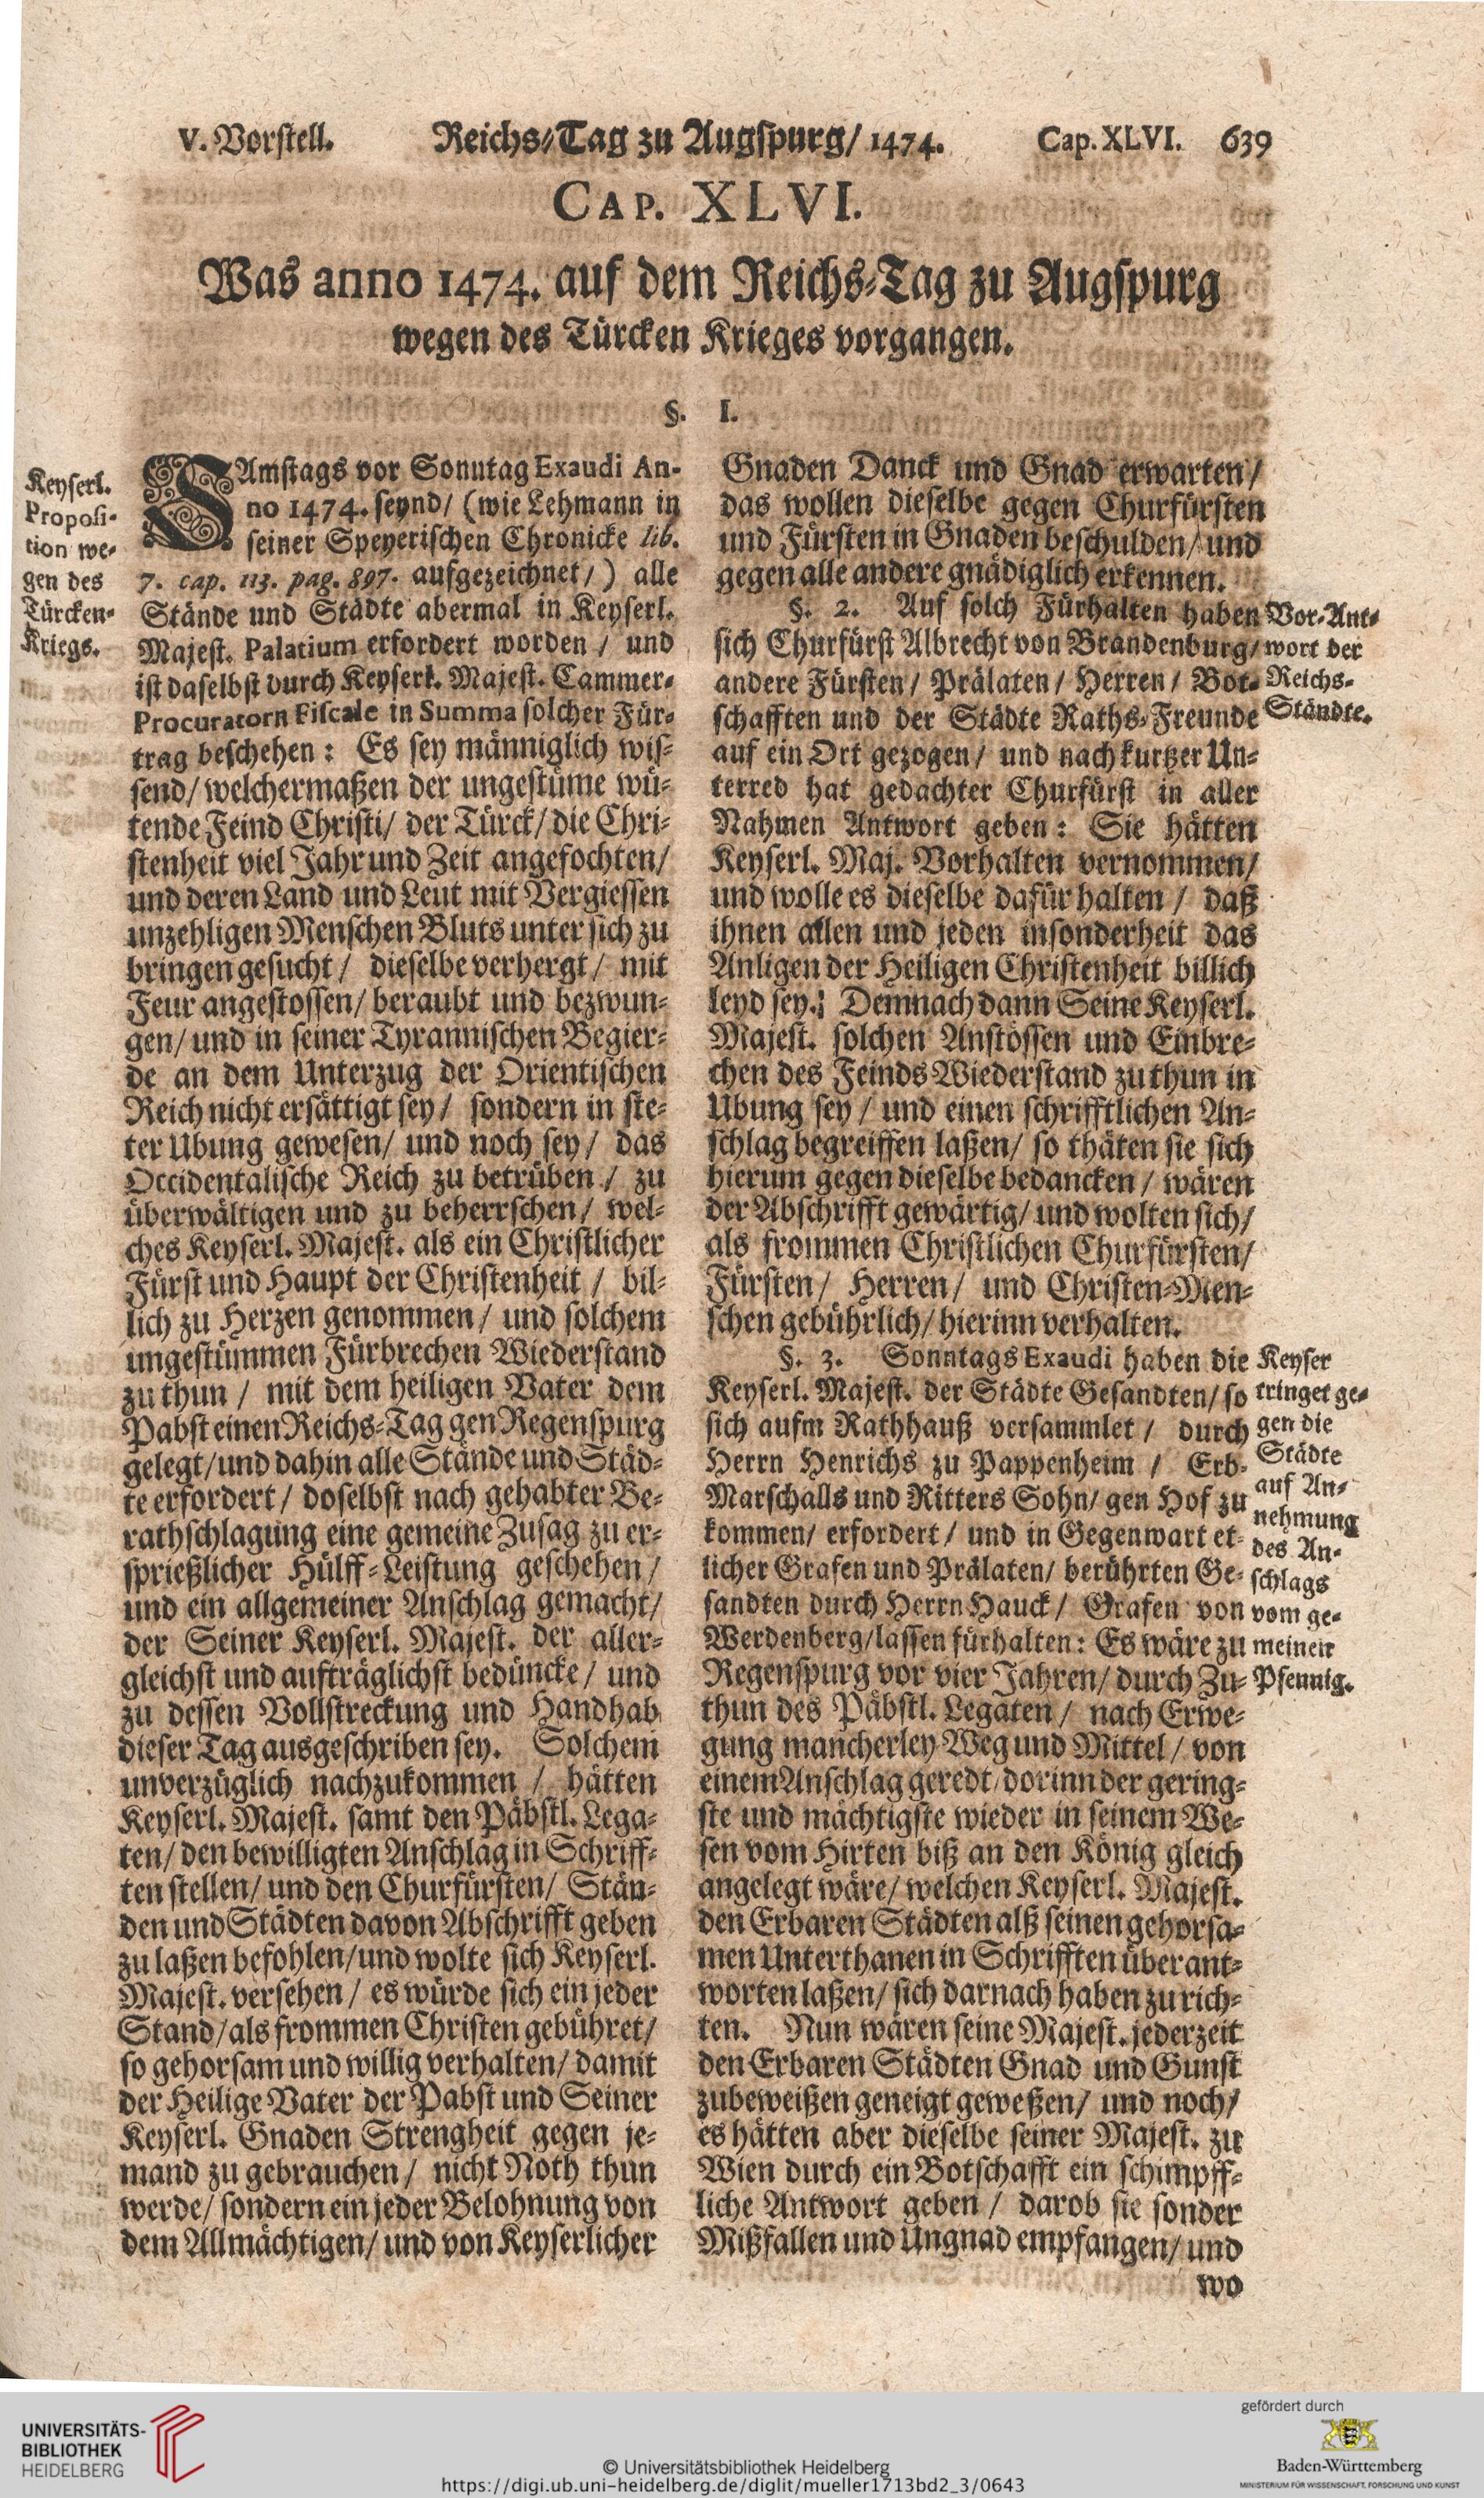 V. Vorstell. Reichs-Tag zu Augspurg/ 1474. Cap. XLVI. 639
CAP. XLVI.
Was anno 1474. auf dem Reichs-Tag zu Augspurg
wegen des Türcken Krieges vorgangen.
§. I.
Keyserl.
Proposi-
tion we-
gen des
Türcken-
Kriegs.
SAmstags vor Sonntag Exaudi An-
no 1474. seynd/ (wie Lehmann in
seiner Speyerischen Chronicke lib.
7. cap. 113. pag. 897. aufgezeichnet/) alle
Stände und Städte abermal in Keyserl.
Majest. Palatium erfordert worden / und
ist daselbst durch Keyserl. Majest. Cammer-
Procuratorn Fiscale in Summa solcher Für-
trag beschehen: Es sey männiglich wis-
send/ welchermaßen der ungestüme wü-
tende Feind Christi/ der Türck/ die Chri-
stenheit viel Jahr und Zeit angefochten/
und deren Land und Leut mit Vergiessen
unzehligen Menschen Bluts unter sich zu
bringen gesucht / dieselbe verhergt / mit
Feur angestossen/ beraubt und bezwun-
gen/ und in seiner Tyrannischen Begier-
de an dem Unterzug der Orientischen
Reich nicht ersättigt sey / sondern in ste-
ter Ubung gewesen/ und noch sey / das
Occidentalische Reich zu betrüben / zu
überwältigen und zu beherrschen / wel-
ches Keyserl. Majest. als ein Christlicher
Fürst und Haupt der Christenheit / bil-
lich zu Herzen genommen / und solchem
ungestümmen Fürbrechen Wiederstand
zu thun / mit dem heiligen Vater dem
Pabst einen Reichs-Tag gen Regenspurg
gelegt/ und dahin alle Stände und Städ-
te erfordert / doselbst nach gehabter Be-
rathschlagung eine gemeine Zusag zu er-
sprießlicher Hülff-Leistung geschehen /
und ein allgemeiner Anschlag gemacht/
der Seiner Keyserl. Majest. der aller-
gleichst und aufträglichst bedüncke / und
zu dessen Vollstreckung und Handhab
dieser Tag ausgeschriben sey. Solchem
unverzüglich nachzukommen / hätten
Keyserl. Majest. samt den Päbstl. Lega-
ten/ den bewilligten Anschlag in Schriff-
ten stellen/ und den Churfürsten/ Stän-
den und Städten davon Abschrifft geben
zu laßen befohlen/ und wolte sich Keyserl.
Majest. versehen / es würde sich ein jeder
Stand/ als frommen Christen gebühret/
so gehorsam und willig verhalten/ damit
der Heilige Vater der Pabst und Seiner
Keyserl. Gnaden Strengheit gegen je-
mand zu gebrauchen / nicht Noth thun
werde/ sondern ein jeder Belohnung von
dem Allmächtigen/ und von Keyserlicher
Gnaden Danck und Gnad erwarten/
das wollen dieselbe gegen Churfürsten
und Fürsten in Gnaden beschulden/ und
gegen alle andere gnädiglich erkennen.
§. 2. Auf solch Fürhalten haben
sich Churfürst Albrecht von Brandenburg/
andere Fürsten / Prälaten / Herren / Bot-
schafften und der Städte Raths-Freunde
auf ein Ort gezogen / und nach kurtzer Un-
terred hat gedachter Churfürst in aller
Nahmen Antwort geben: Sie hätten
Keyserl. Maj. Vorhalten vernommen/
und wolle es dieselbe dafür halten / daß
ihnen allen und jeden insonderheit das
Anligen der Heiligen Christenheit billich
leyd sey. Demnach dann Seine Keyserl.
Majest. solchen Anstössen und Einbre-
chen des Feinds Wiederstand zu thun in
Ubung sey / und einen schrifftlichen An-
schlag begreiffen laßen/ so thäten sie sich
hierum gegen dieselbe bedancken / wären
der Abschrifft gewärtig/ und wolten sich/
als frommen Christlichen Churfürsten/
Fürsten / Herren / und Christen-Men-
schen gebührlich/ hierinn verhalten.
§. 3. Sonntags Exaudi haben die
Keyserl. Majest. der Städte Gesandten/ so
sich aufm Rathhauß versammlet / durch
Herrn Henrichs zu Pappenheim / Erb-
Marschalls und Ritters Sohn/ gen Hof zu
kommen/ erfordert / und in Gegenwart et-
licher Grafen und Prälaten/ berührten Ge-
sandten durch Herrn Hauck / Grafen von
Werdenberg/ lassen fürhalten: Es wäre zu
Regenspurg vor vier Jahren/ durch Zu-
thun des Päbstl. Legaten / nach Erwe-
gung mancherley Weg und Mittel / von
einem Anschlag geredt/ dorinn der gering-
ste und mächtigste wieder in seinem We-
sen vom Hirten biß an den König gleich
angelegt wäre/ welchen Keyserl. Majest.
den Erbaren Städten alß seinen gehorsa-
men Unterthanen in Schrifften überant-
worten laßen/ sich darnach haben zu rich-
ten. Nun wären seine Majest. jederzeit
den Erbaren Städten Gnad und Gunst
zubeweißen geneigt geweßen/ und noch/
es hätten aber dieselbe seiner Majest. zu
Wien durch ein Botschafft ein schimpff-
liche Antwort geben / darob sie sonder
Mißfallen und Ungnad empfangen/ und
wo
Vor-Ant-
wort der
Reichs-
Stände.
Keyser
tringet ge-
gen die
Städte
auf An-
nehmung
des An-
schlags
vom ge-
meinen
Pfennig.
UNIVERSITÄTS-
BIBLIOTHEK
HEIDELBERG
© Universitätsbibliothek Heidelberg
https://digi.ub.uni-heidelberg.de/diglit/mueller1713bd2_3/0643
gefördert durch
Baden-Württemberg
MINISTERIUM FÜR WISSENSCHAFT, FORSCHUNG UND KUNST